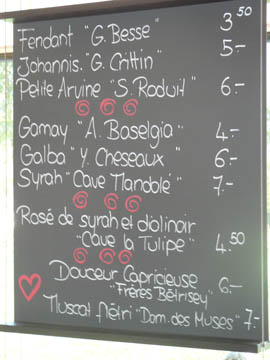 Fendant "G. Besse" 3.50
Johannis. "G. Crittin" 5.-
Petite Arvine "S. Roduit" 6.-
Gamay "A. Boselgia" 4.-
Galba "Y. Cheseaux" 6.-
Syrah "Cave Mandolé" 7.-
Rosé de syrah et diolinoir
"Cave la Tulipe" 4.50
Douceur Capricieuse 6.-
"Frères Bétrisey"
Muscat flétri "Dom. des Muses" 7.-